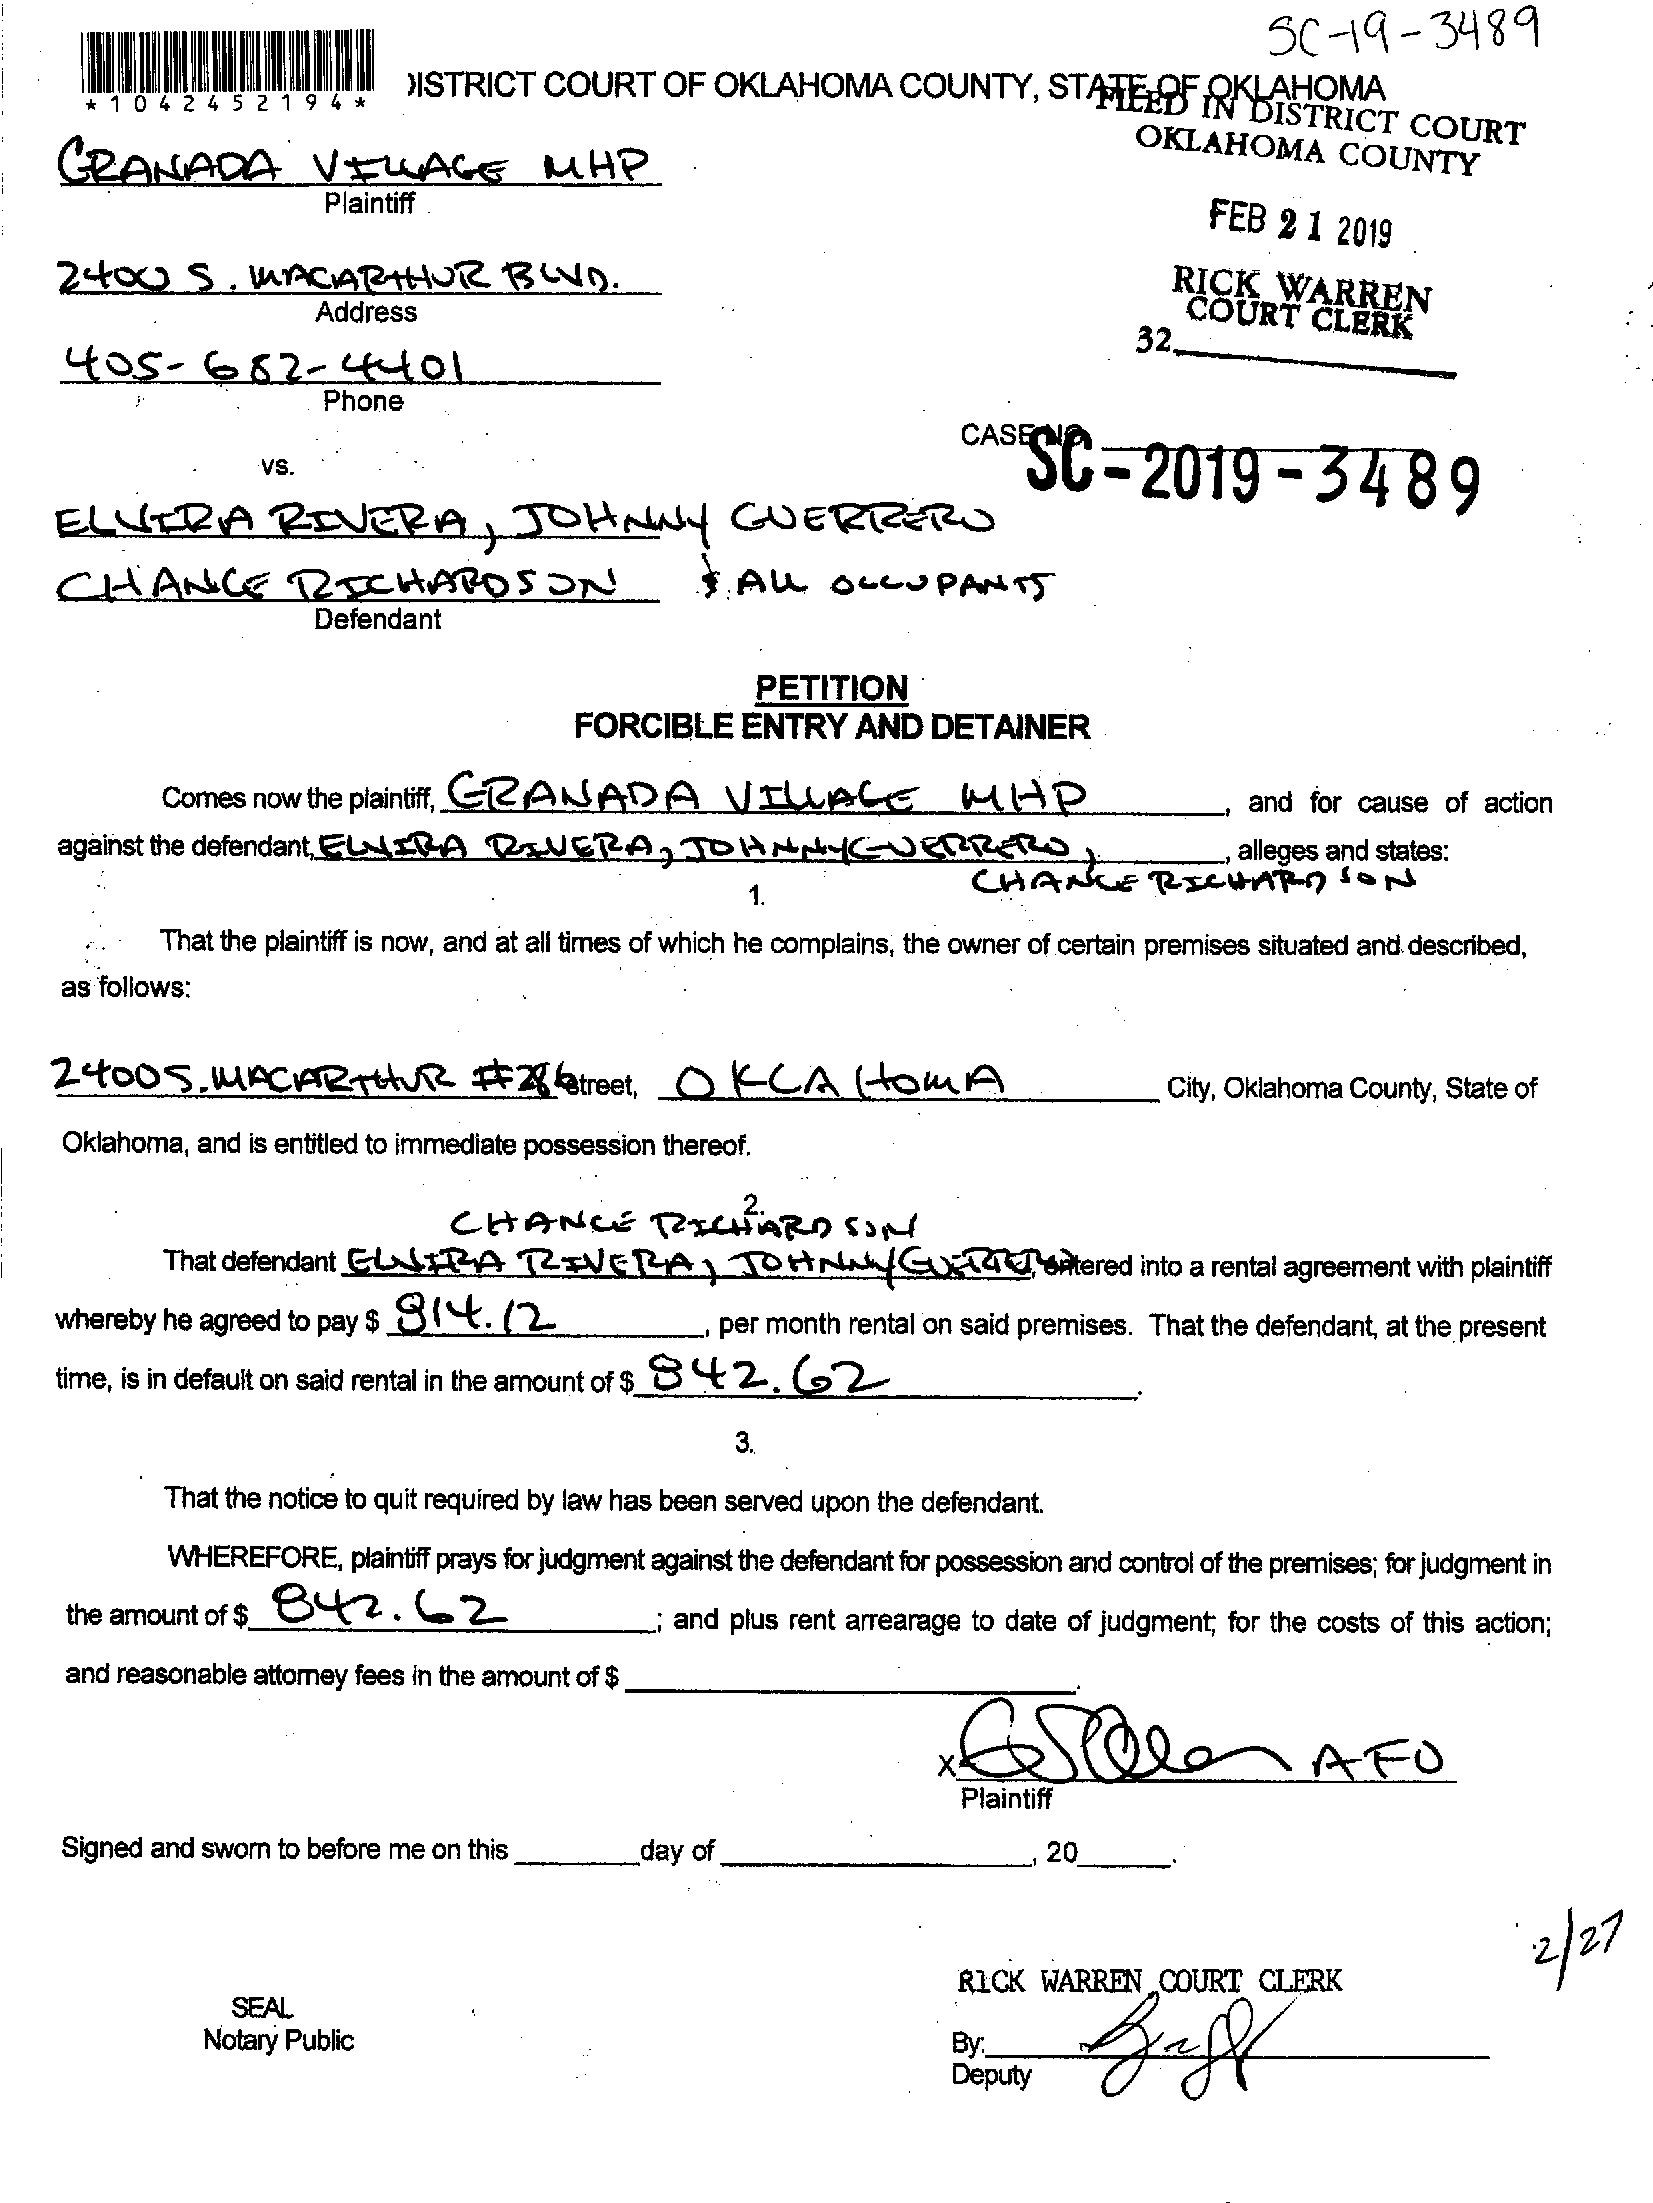 SC-19-3489
*1042452194*
DISTRICT COURT OF OKLAHOMA COUNTY, STATE OF OKLAHOMA
FILED IN DISTRICT COURT
OKLAHOMA COUNTY
GRANADA VILLAGE MHP
Plaintiff
FEB 21 2019
2400 S. MACARTHUR BLVD.
Address
RICK WARREN
COURT CLERK
32
405-682-4401
Phone
CASE NO.
SC-2019-3489
vs.
ELVIRA RIVERA, JOHNNY GUERRERO
CHANCE RICHARDSON & ALL OCCUPANTS
Defendant
PETITION
FORCIBLE ENTRY AND DETAINER
Comes now the plaintiff, GRANADA VILLAGE MHP, and for cause of action
against the defendant, ELVIRA RIVERA, JOHNNY GUERRERO, , alleges and states:
CHANCE RICHARDSON
1.
That the plaintiff is now, and at all times of which he complains, the owner of certain premises situated and described,
as follows:
2400 S. MACARTHUR # street, OKLAHOMA City, Oklahoma County, State of
Oklahoma, and is entitled to immediate possession thereof.
2.
CHANCE RICHARDSON
That defendant ELVIRA RIVERA, JOHNNY GUERRERO, entered into a rental agreement with plaintiff
whereby he agreed to pay $ 814.12, per month rental on said premises. That the defendant, at the present
time, is in default on said rental in the amount of $ 842.62.
3.
That the notice to quit required by law has been served upon the defendant.
WHEREFORE, plaintiff prays for judgment against the defendant for possession and control of the premises; for judgment in
the amount of $ 842.62; and plus rent arrearage to date of judgment; for the costs of this action;
and reasonable attorney fees in the amount of $ .
X AFO
Plaintiff
Signed and sworn to before me on this day of , 20 .
2/27
RICK WARREN COURT CLERK
SEAL
Notary Public
By:
Deputy